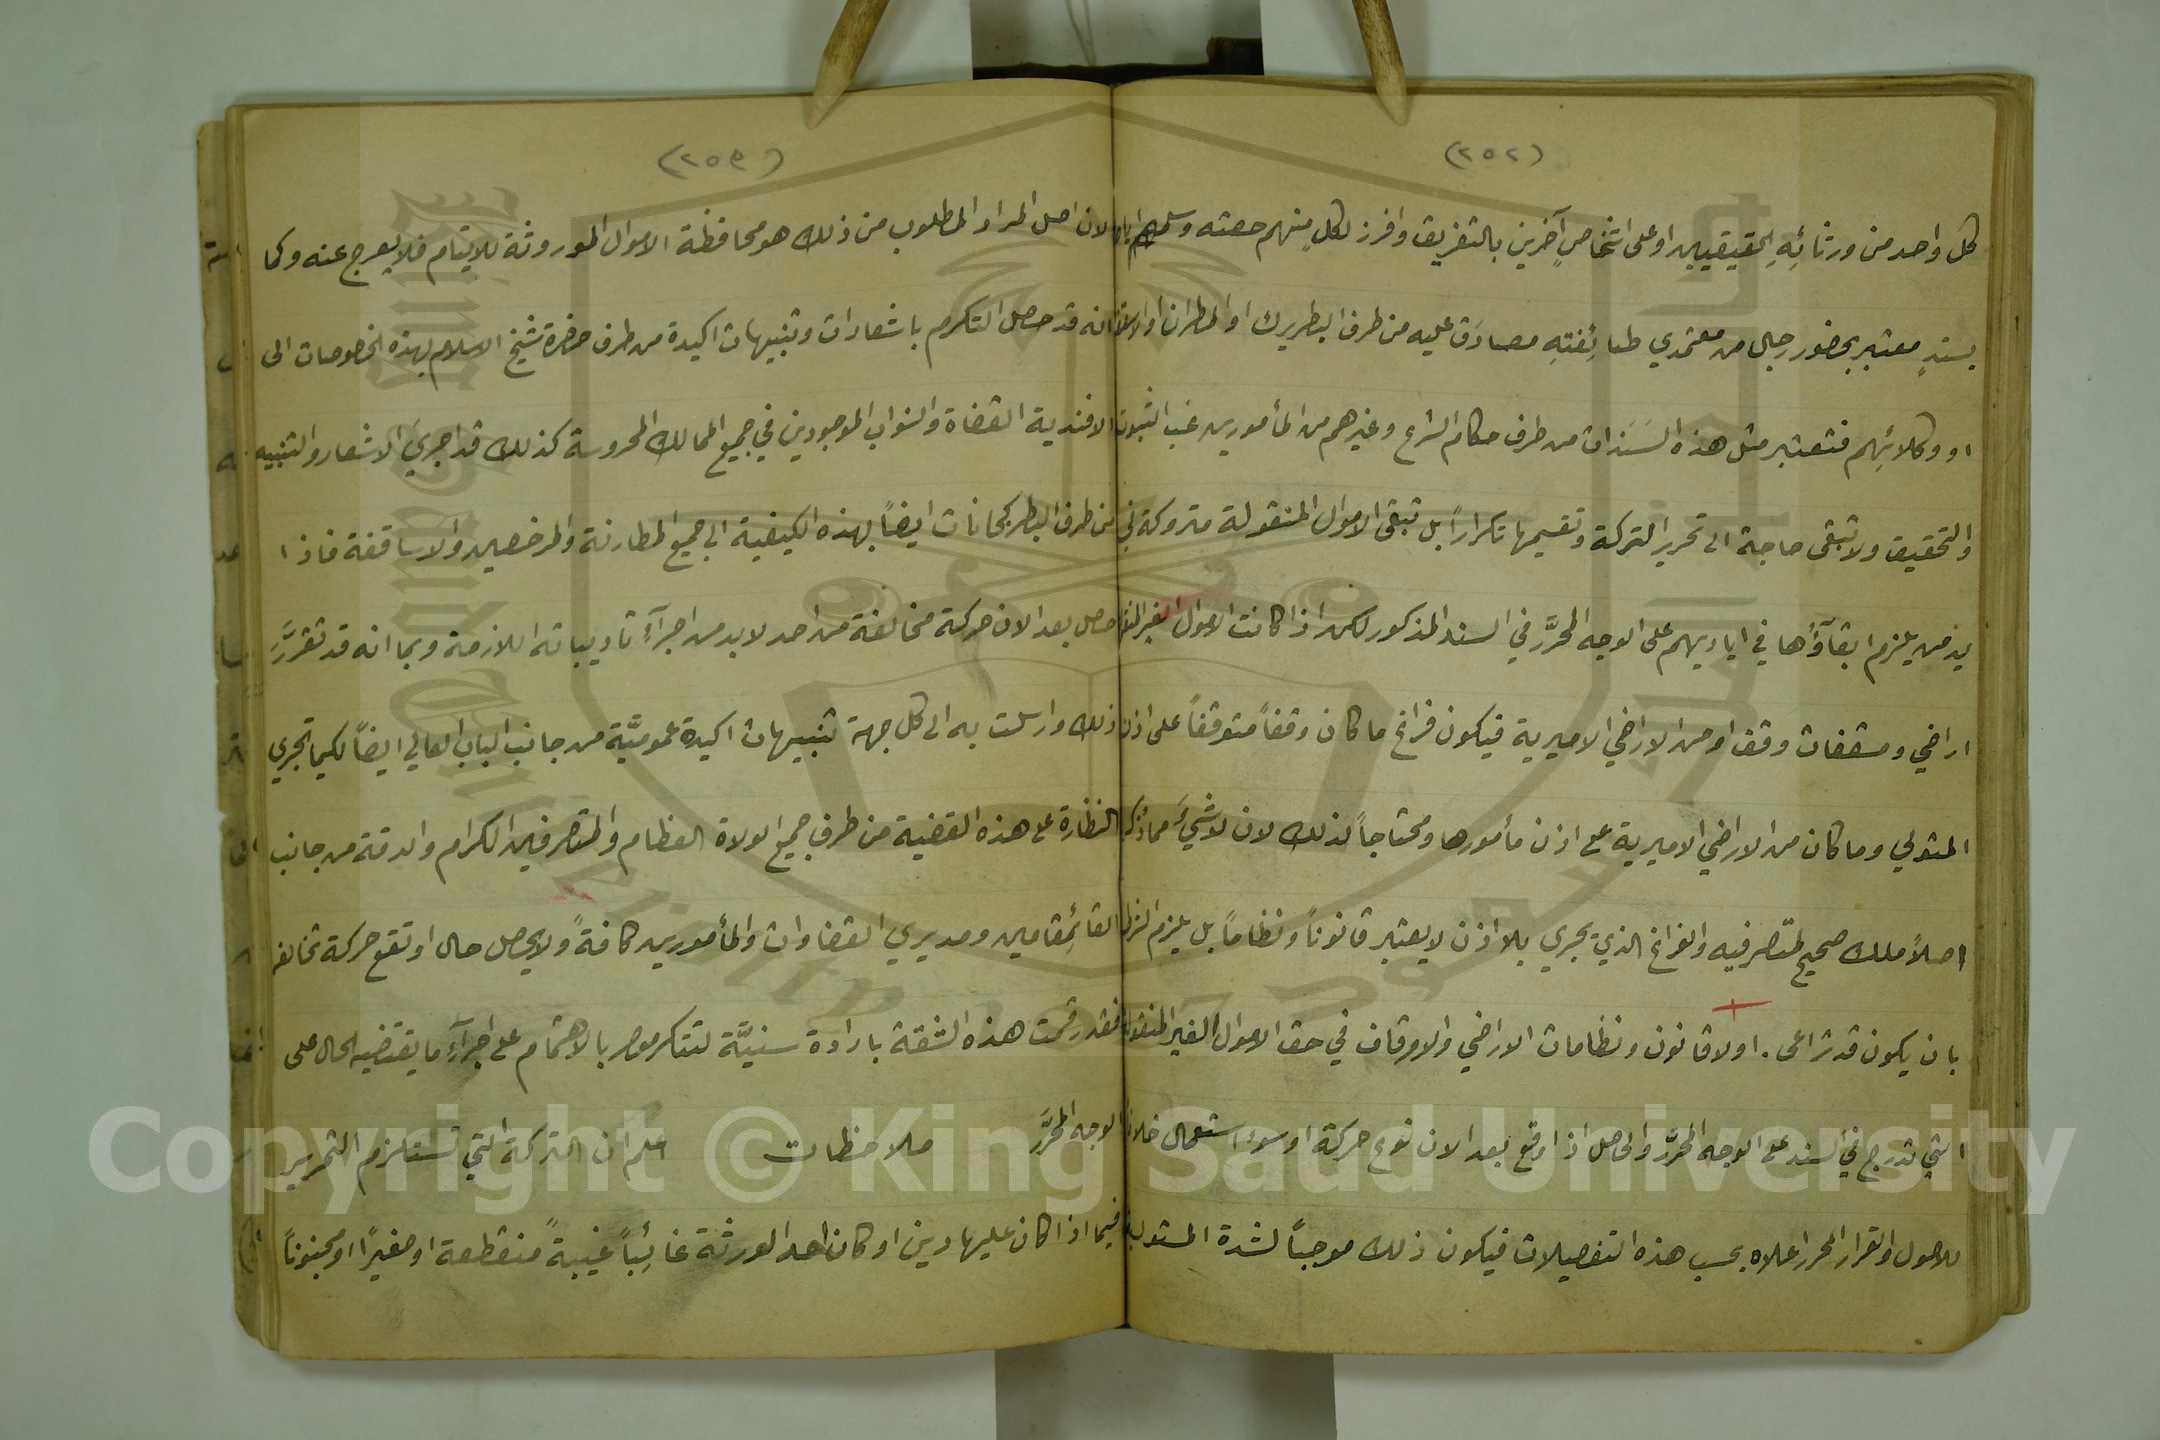 (٢٥٢)
كل واحد من ورثائِهِ الحقيقيين او على اشخاصٍ آخرين بالتفريق وافرز لكلٍ منهم حصته وسلمهم اياها
بسندٍ معتبر بحضور رجال من معتمدي طائِفتهِ مصادَق عليه من طرف البطريرك او المطران او الاسقف
او وكلائِهم فتعتبر مثل هذه السَنَدات من طرف حكام الشرع وغيرهم من المأمورين غب الثبوت
والتحقيق ولا تبقى حاجة الى تحرير التركة وتقسيمها تكراراً بل تبقى الاموال المنقولة متروكة في
يد من يلزم ابقآؤُها في اياديهم على الوجه المحرَّر في السند المذكور لكن اذا كانت الاموال الغير المنقولة
اراضي ومسقفات وقف او من الاراضي الاميرية فيكون فراغ ما كان وقفاً متوقفاً على اذن
المتولي وما كان من الاراضي الاميرية على اذن مأمورها ومحتاجاً لذلك لان لا شيءَ مما ذُكر
اصلاً ملك صحيح لمتصرفيه والفراغ الذي يجري بلا اذن لا يعتبر قانوناً ونظاماً بل يلزم
بان يكون قد تراعى . اولا قانون ونظامات الاراضي والاوقاف في حق الاموال الغير المنقولة
التي تدرج في السند على الوجه المحرَّر والحاصل اذا وقع بعد الان نوع حركة او سوء استعمال خلافاً
للاصول والقرار المحرر اعلاه بحسب هذه التفصيلات فيكون ذلك موجباً لشدة المسئولية
(٢٥٣)
لان اصل المراد المطلوب من ذلك هو محافظة الاموال الموروثة للايتام فلا يعرج عنه وكما
انه قد حصل التكرم باشعارات وتنبيهات اكيدة من طرف حضرة شيخ الاسلام بهذه الخصوصات الى
الافندية القضاة والنواب الموجودين في جميع الممالك المحروسة كذلك قد اجريَ الاشعار والتنبيه
من طرف البطركخانات ايضاً بهذه الكيفية الى جميع المطارنة والمرخصين والاساقفة فاذا
حصل بعد الان حركة مخالفة من احد لا بد من اجرآءِ تاديباته اللازمة وبما انه قد تقرَّر
ذلك وارسلت به الى كل جهة تنبيهات اكيدة عموميَّة من جانب الباب العالي ايضاً لكيما تجري
النظارة على هذه القضية من طرف جميع الولاة العظام والمتصرفين الكرام والدقة من جانب
القائمِقامين ومديري القضاوات والمأمورين كافةً ولا يحصل حال او تقع حركة تخالفه
فقد رقمت هذه الشقة بارادة سنيَّة لتتكرموا بالاهتمام على اجرآءِ ما يقتضيه الحال على
الوجه المحرَّر ملاحظات اعلم ان التركة التي تستلزم التحرير
فيما اذا كان عليها دين او كان احد الورثة غائِباً غيبةً منقطعة او صغيرًا او مجنوناً
Copyright © King Saud University